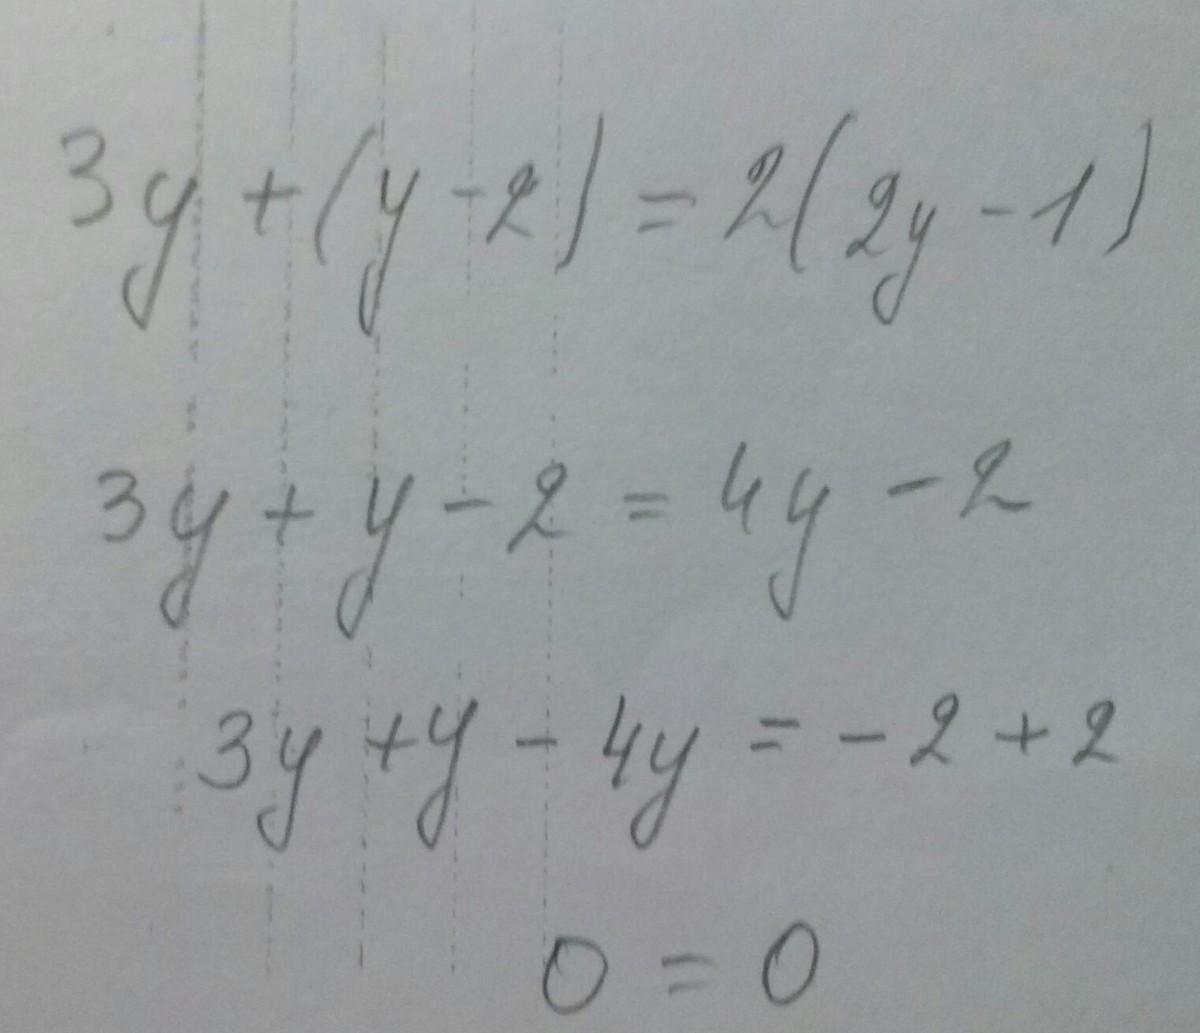 3y + (y - 2) = 2(2y - 1)
3y + y - 2 = 4y - 2
3y + y - 4y = - 2 + 2
0 = 0